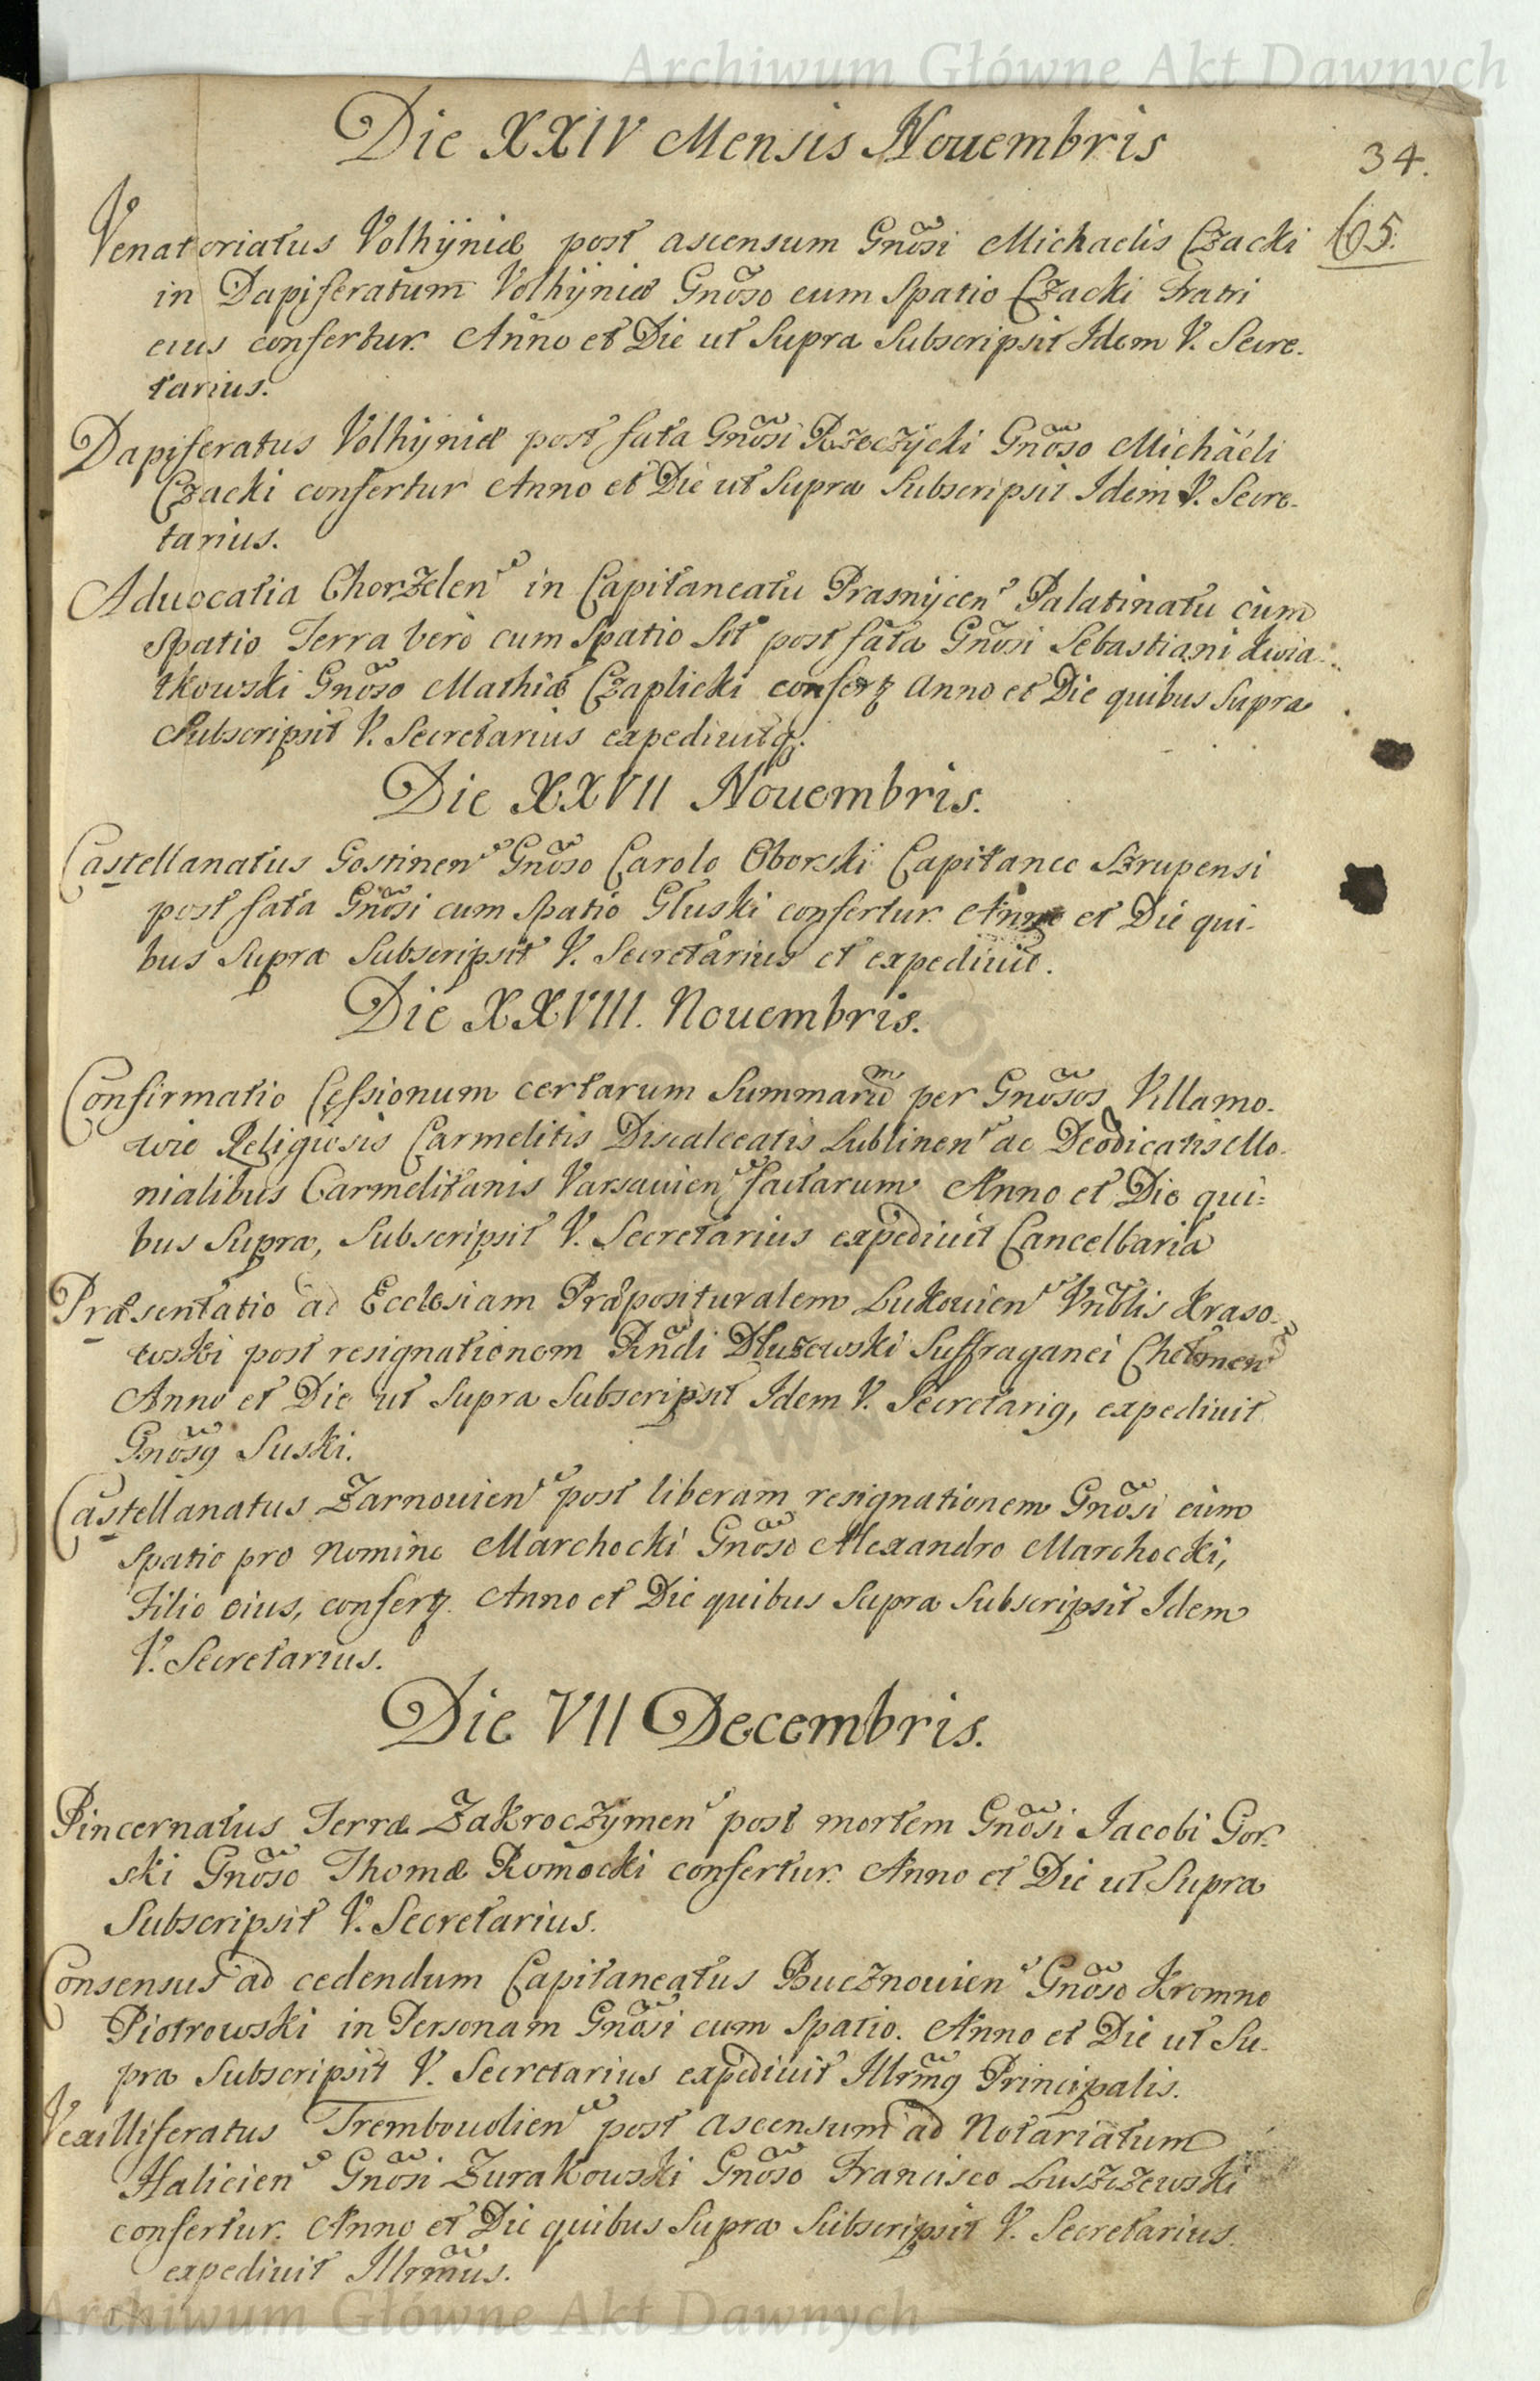 Archiwum Główne Akt Dawnych
Die XXIV Mensis Nouembris
34.
65.
Venatoriatus Volhÿniæ post ascensum Gnõsi Michaelis Czacki
in Dapiferatum Volhÿniæ Gnõso cum Spatio Czacki Fratri
eius confertur. Anno et Die ut Supra Subscripsit Idem V. Secre-
tarius.
Dapiferatus Volhÿniæ post fata Gnõsi Rzeczÿcki Gnõso Michaeli
Czacki confertur Anno et Die ut Supra Subscripsit Idem V. Secre-
tarius.
Aduocatia Chorzelen in Capitaneatu Prasnÿcen Palatinatu cum
Spatio Terra vero cum Spatio Sit post fata Gnõsi Sebastiani Kwia-
tkowski Gnõso Mathiæ Czaplicki confertꝫ Anno et Die quibus Supra
Subscripsit V. Secretarius expediuitq.
Die XXVII Nouembris.
Castellanatus Gostinen Gnõso Carolo Oborski Capitaneo Strupensi
post fata Gnõsi cum Spatio Głuski confertur. Anno et Die qui-
bus Supra Subscripsit V. Secretarius et expediuit.
Die XXVIII. Nouembris.
Confirmatio Cessionum certarum Summarũ per Gnõsos Villamo-
wie Religiosis Carmelitis Discalceatis Lublinen ac Deodicatis Mo-
nialibus Carmelitanis Varsauien factarum Anno et Die qui-
bus Supra, Subscripsit V. Secretarius expediuit Cancellaria
Præsentatio ad Ecclesiam Præposituralem Lukouien Vnblis Kraso-
wski post resignationem Rñdi Dłuzewski Suffraganei Chełmen
Anno et Die ut Supra Subscripsit Idem V. Secretariꝯ, expediuit
Gnõsꝯ Suski.
Castellanatus Zarnouien post liberam resignationem Gnõsi cum
Spatio pro nomine Marchocki Gnõso Alexandro Marchocki,
Filio eius, confertꝫ. Anno et Die quibus Supra Subscripsit Idem
V. Secretarius.
Die VII Decembris.
Pincernatus Terræ Zakroczÿmen post mortem Gnõsi Iacobi Gor-
ski Gnõso Thomæ Romocki confertur. Anno et Die ut Supra
Subscripsit V. Secretarius.
Consensus ad cedendum Capitaneatus Bucznouien Gnõso Kromno
Piotrowski in Personam Gnõsi cum Spatio. Anno et Die ut Su-
pra Subscripsit V. Secretarius expediuit Illrmꝯ Principalis.
Vexilliferatus Trembouolien post ascensum ad Notariatum
Halicien Gnõsi Zurakowski Gnõso Francisco Luszczewski
confertur. Anno et Die quibus Supra Subscripsit V. Secretarius.
expediuit Illrmus.
Archiwum Główne Akt Dawnych